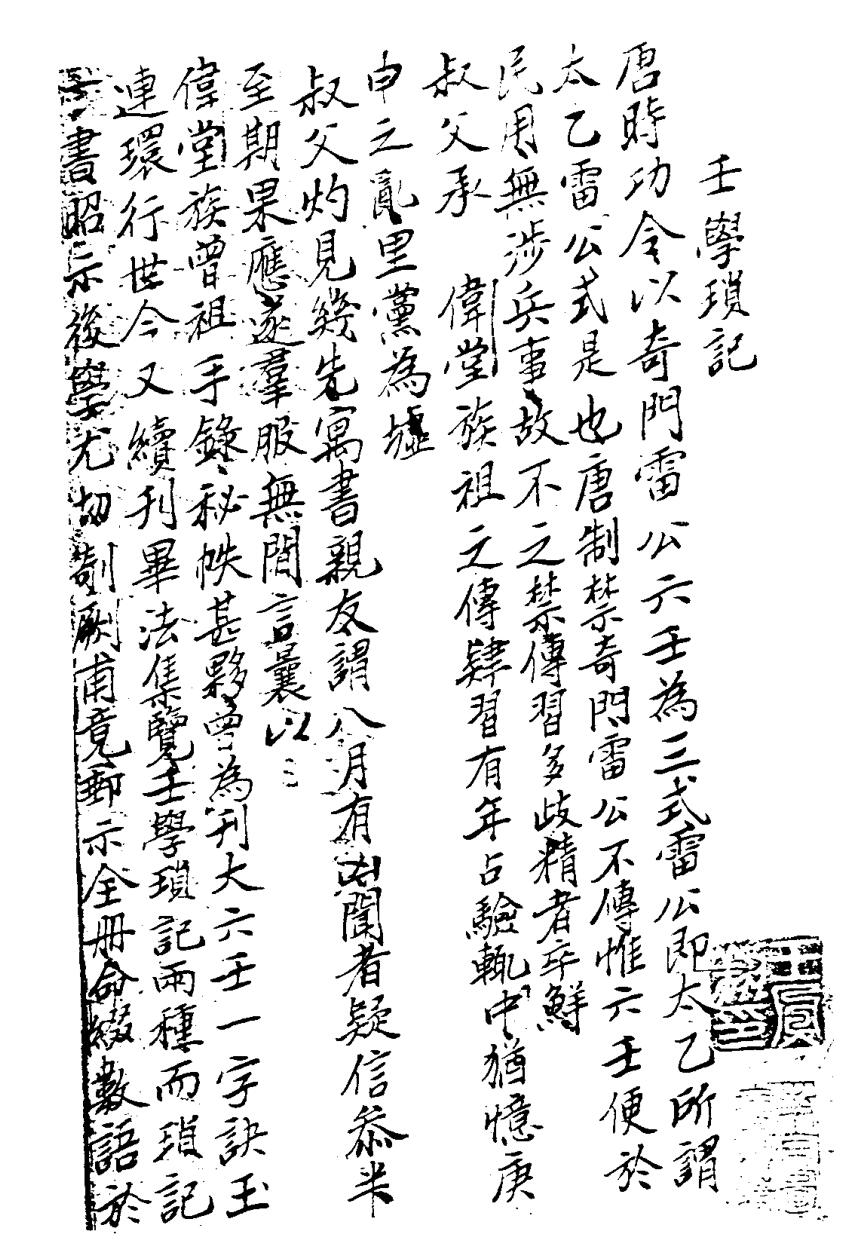 壬學瑣記
唐時功令以奇門雷公六壬為三式雷公即太乙所謂
太乙雷公式是也唐制禁奇門雷公不傳惟六壬便於
民用無涉兵事故不之禁傳習多歧精者卒鮮
叔父承 偉堂族祖之傳肄習有年占驗輒中猶憶庚
申之亂里黨為墟
叔父灼見幾先寓書親友謂八月有凶聞者疑信叅半
至期果應遂羣服無閒言曩以
偉堂族曾祖手錄秘帙甚夥曾為刊大六壬一字訣玉
連環行世今又續刊畢法集覽壬學瑣記兩種而瑣記
書昭示後學尤切剞劂甫竟郵示全冊命綴數語於